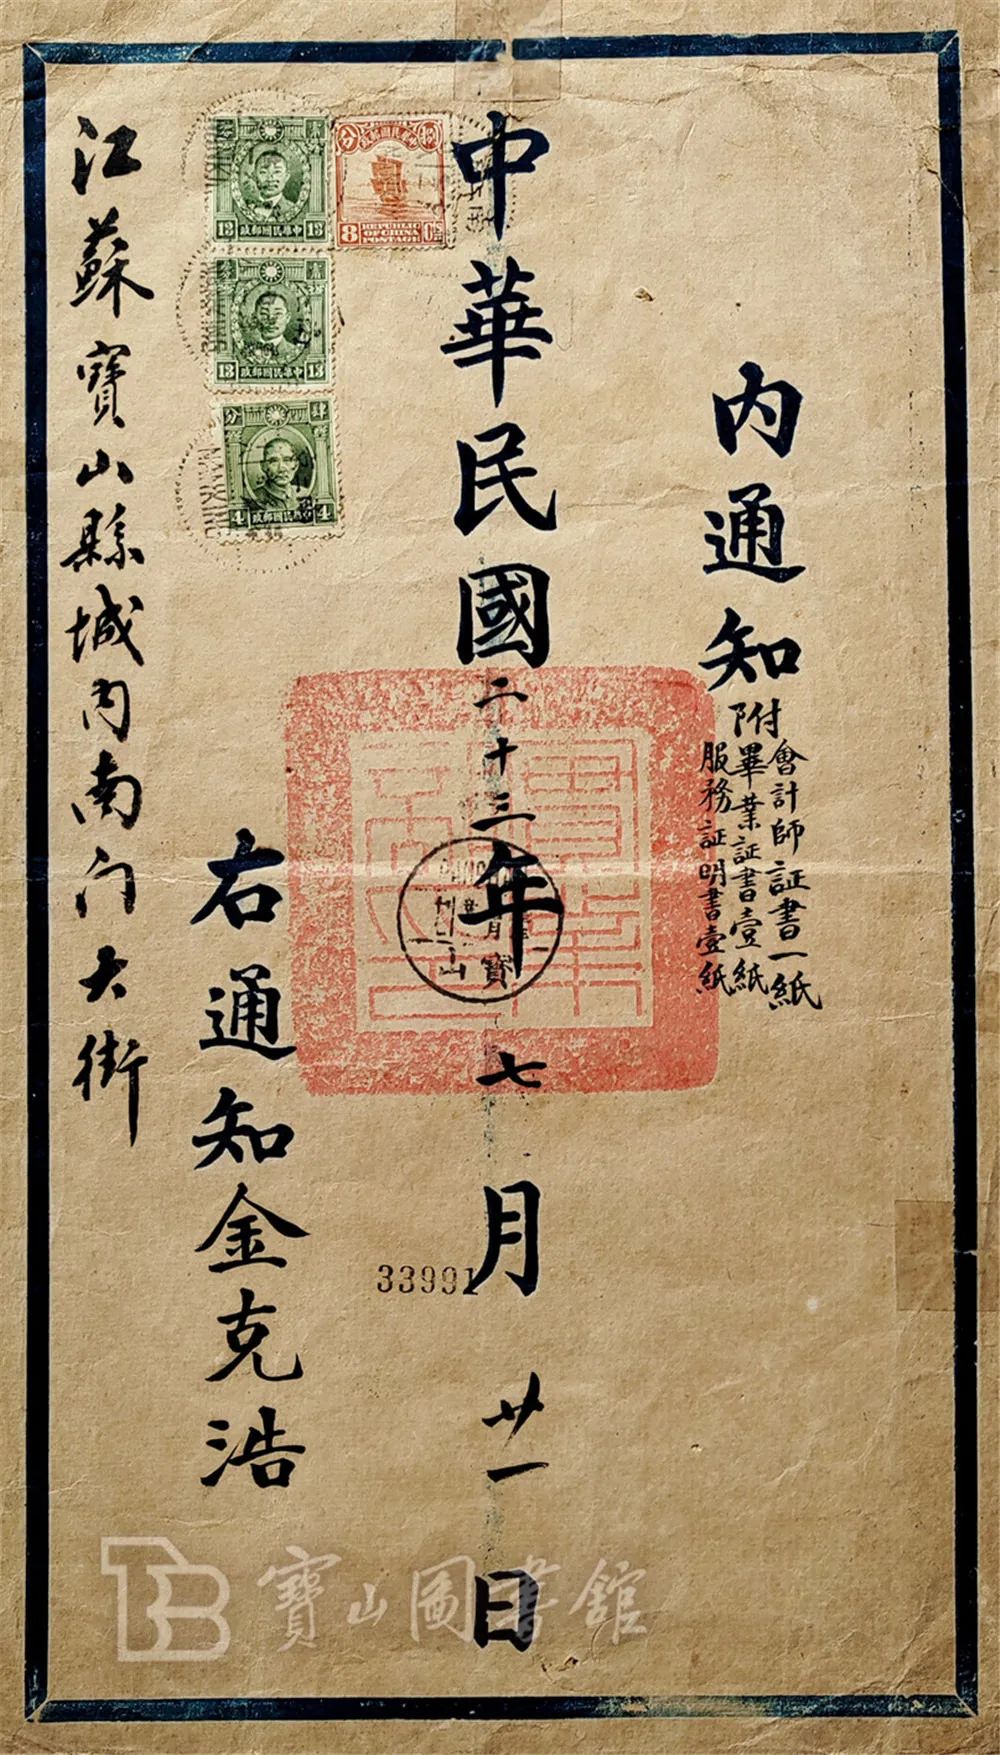 内通知
附
會計師証書一紙
畢業証書壹紙
服務証明書壹紙
中華民國二十三年七月廿一日
右通知金克浩
江蘇寶山縣城内南门大街
33991
分 捌
8
REPUBLIC
OF CHINA
POSTAGE
13 中華民國郵政 13
13 中華民國郵政 13
分 肆
4 4
寶山
寶山圖書館